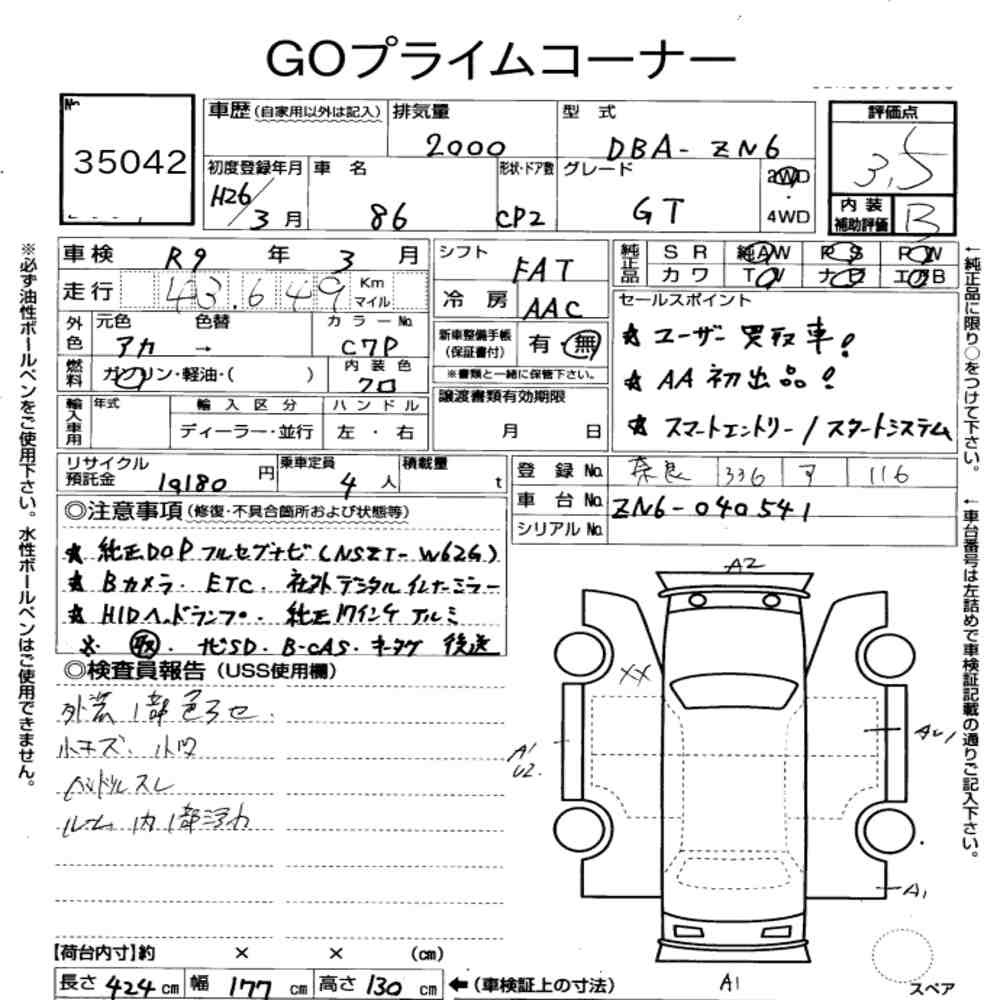 GOプライムコーナー
No.
35042
車歴(自家用以外は記入)
排気量
2000
型 式
DBA-ZN6
評価点
3.5
初度登録年月
H26/3月
車 名
86
形状・ドア数
CP2
グレード
GT
2WD
・
4WD
内 装
補助評価
B
車 検 R9 年 3 月
走 行 43.649 Km マイル
シフト
FAT
冷 房 AAC
純正品
S R 純AW PS PW
カ ワ TV ナビ エアB
外色
元色 色替
アカ →
カ ラ ー No.
C7P
新車整備手帳
(保証書付)
有・無
※書類と一緒に保管下さい。
燃料
ガソリン・軽油・( )
内 装 色
クロ
セールスポイント
★ ユーザー買取車!
★ AA初出品!
★ スマートエントリー/スタートシステム
輸入車用
年式
輸 入 区 分
ディーラー・並行
ハ ン ド ル
左 ・ 右
譲渡書類有効期限
月 日
リサイクル
預託金
19180 円
乗車定員
4 人
積載量
t
登 録 No. 奈良 336 ア 116
車 台 No. ZN6-040541
シリアル No.
◎注意事項(修復・不具合箇所および状態等)
★ 純正DOPフルセグナビ(NSZT-W62G)
★ Bカメラ. ETC. 社外デジタルインナーミラー
★ HIDヘッドランプ. 純正17インチアルミ
※ 取. ナビSD. B-CAS. キータグ 後送
◎検査員報告(USS使用欄)
外装1部色アセ
小キズ、小凹
ハンドルスレ
ルーム内1部浮力
A2
XX
A1
U2.
AU1
A1
A1
スペア
【荷台内寸】約 × × (cm)
長さ 424 cm 幅 177 cm 高さ 130 cm ←(車検証上の寸法)
※必ず油性ボールペンをご使用下さい。水性ボールペンはご使用できません。
←純正品に限り○をつけて下さい。
←車台番号は左詰めで車検証記載の通りご記入下さい。